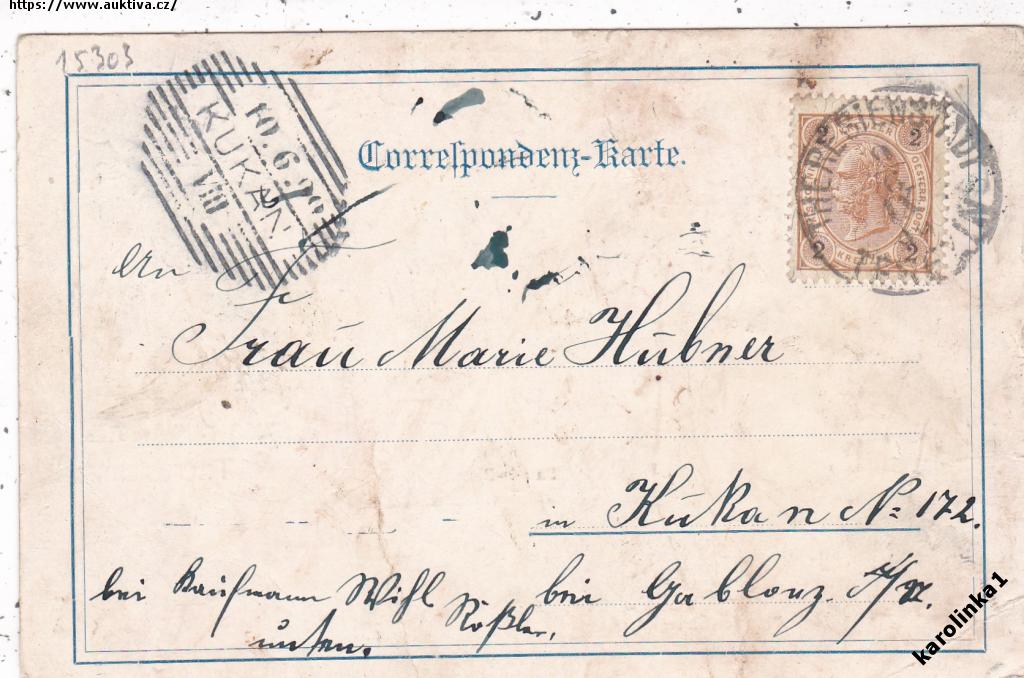 https://www.auktiva.cz/
15303
10.6.99
KUKAN
VIII
Correspondenz-Karte.
2 2
2 2
THERESIENSTADT
An
Frau Marie Hübner
in Kukan No 172.
bei Kaufmann Wihl. Rößler, bei Gablonz a/N.
unten.
karolinka1